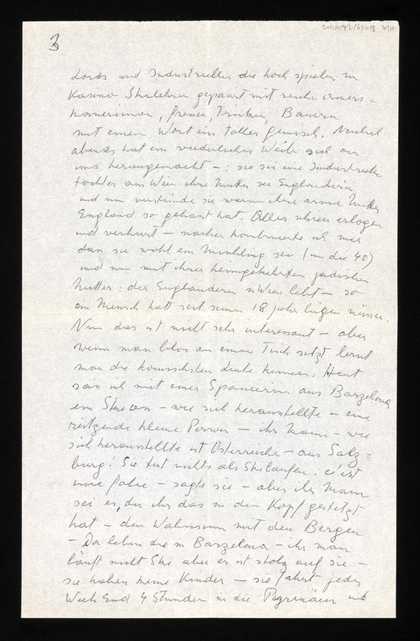 3
Lords und Industriellen die hoch spielen im
Kasino Skilehrer gepaart mit reiche
, Trinker, Bauern
mit einem Wort ein tolles Gemisch. Neulich
abends hat ein Weib sich an
uns herangemacht – : sie sei eine Industriellen
tochter aus Wien ihre Mutter sei Engländerin
und nun verstünde sie warum ihre arme Mutter
England so gehasst hat. Alles erlogen
und verhurt – nachher kombinierte ich mir
dass sie wohl ein sei (um die 40)
und nun mit ihrer jüdischen
Mutter : der Engländerin in Wien lebt – so
ein Mensch hatt seit seinen 18 Jahr lügen müssen.
Nun das ist nicht sehr interessant – aber
wenn man blos an einem Tisch sitzt lernt
man die komischsten Leute kennen. Heut
sass ich mit einer Spanierin aus Barzelona
ein – wie sich herausstellte – eine
reitzende kleine Person – ihr Mann – wie
sich herausstellte ist Österreicher – aus Salz-
burg! Sie tut nichts als Skilaufen. c'est
une folie – sagte sie – aber ihr Mann
sei es, der ihr das in den Kopf gesetzt
hat – den Wahnsinn mit den Bergen
– Da leben sie in Barzelona – ihr Mann
läuft nicht Ski aber er ist stolz auf sie –
sie haben keine Kinder – sie fährt jedes
Week End 4 Stunden in die Pyrenäen und